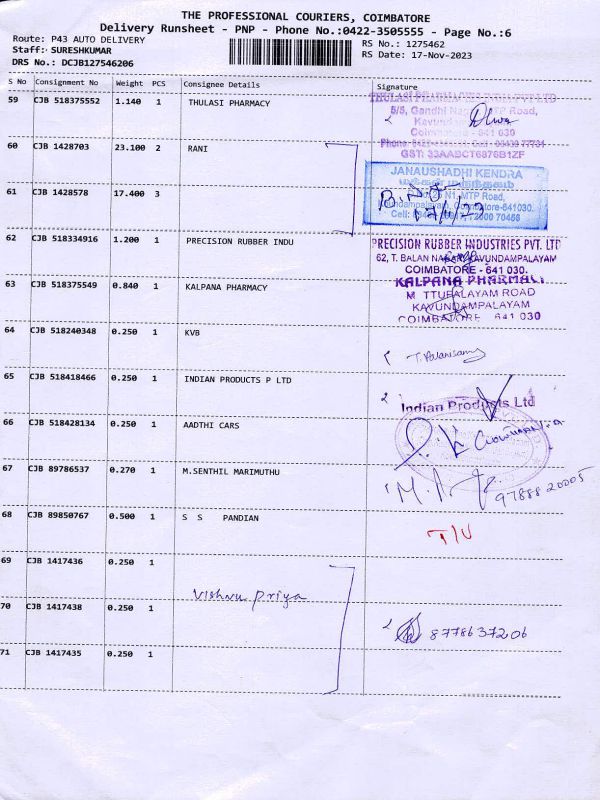 THE PROFESSIONAL COURIERS, COIMBATORE
Delivery Runsheet - PNP - Phone No.:0422-3505555 - Page No.:6
Route: P43 AUTO DELIVERY
Staff: SURESHKUMAR
DRS No.: DCJB127546206
RS No.: 1275462
RS Date: 17-Nov-2023
S No Consignment No Weight PCS Consignee Details Signature
59 CJB 518375552 1.140 1 THULASI PHARMACY
THULASI PHARMA
5/5, Gandhi MTP Road,
Coimbatore - 641 030
GST: 33AABCT6876B1ZF
60 CJB 1428703 23.100 2 RANI
JANAUSHADHI KENDRA
மக்கள் மருந்தகம்
N1, MTP Road,
Coimbatore-641030.
61 CJB 1428578 17.400 3
62 CJB 518334916 1.200 1 PRECISION RUBBER INDU
PRECISION RUBBER INDUSTRIES PVT. LTD
62, T. BALAN KAVUNDAMPALAYAM
COIMBATORE - 641 030.
63 CJB 518375549 0.840 1 KALPANA PHARMACY
KALPANA PHARMACY
M TTUPALAYAM ROAD
KAVUNDAMPALAYAM
COIMBATORE 641 030
64 CJB 518240348 0.250 1 KVB
T. Palanisamy
65 CJB 518418466 0.250 1 INDIAN PRODUCTS P LTD
Indian Products Ltd
66 CJB 518428134 0.250 1 AADTHI CARS
67 CJB 89786537 0.270 1 M.SENTHIL MARIMUTHU
9788820005
68 CJB 89850767 0.500 1 S S PANDIAN
T/U
69 CJB 1417436 0.250 1
Vishnu Priya
70 CJB 1417438 0.250 1
8778637206
71 CJB 1417435 0.250 1